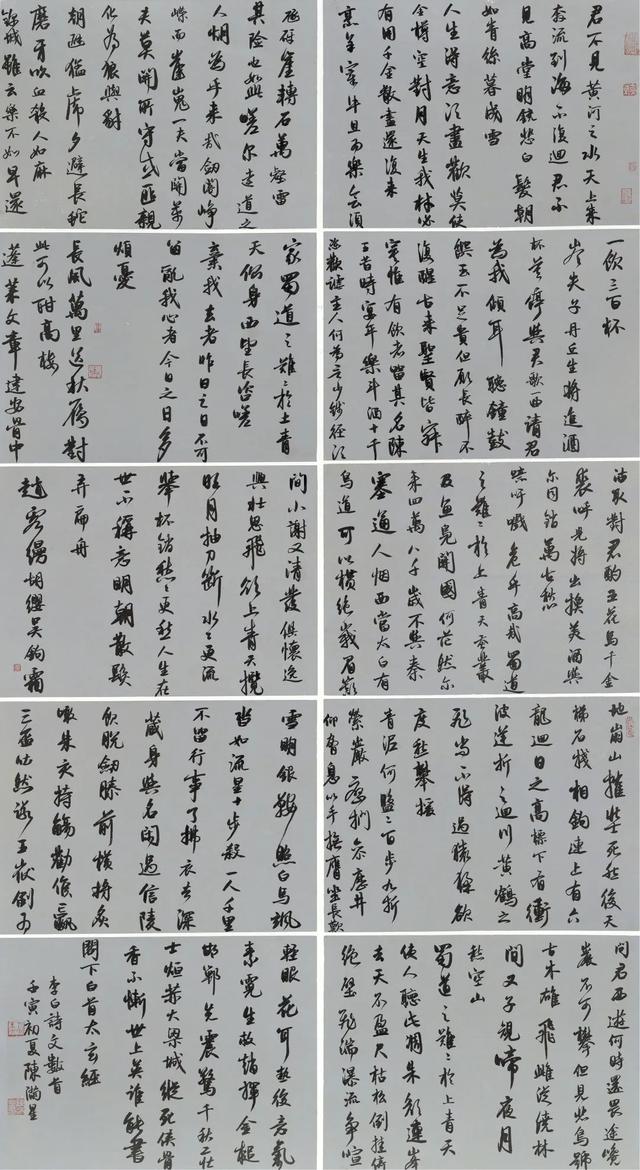 君不見黃河之水天上来
奔流到海不復迴君不
見高堂明鏡悲白髮朝
如青絲暮成雪
人生得意須盡歡莫使
金樽空對月天生我材必
有用千金散盡還復来
烹羊宰牛且為樂會須
一飲三百杯
岑夫子丹丘生將進酒
杯莫停與君歌一曲請君
為我傾耳聽鐘鼓
饌玉不足貴但願長醉不
復醒古来聖賢皆寂
寞惟有飲者留其名陳
王昔時宴平樂斗酒十千
恣歡謔主人何為言少錢徑須
沽取對君酌五花馬千金
裘呼兒將出換美酒與
尔同銷萬古愁
噫吁嚱危乎高哉蜀道
之難難於上青天蠶叢
及魚鳧開國何茫然尔
来四萬八千歲不與秦
塞通人烟西當太白有
鳥道可以橫絕峨眉巔
地崩山摧壯士死然後天
梯石棧相鉤連上有六
龍迴日之高標下有衝
波逆折之迴川黃鶴之
飛尚不得過猿猱欲
度愁攀援
青泥何盤盤百步九折
縈巖巒捫參歷井
仰脅息以手撫膺坐長歎
問君西遊何時還畏途巉
巖不可攀但見悲鳥號
古木雄飛雌從繞林
間又子規啼夜月
愁空山
蜀道之難難於上青天
使人聽此凋朱顏連峰
去天不盈尺枯松倒挂倚
絕壁飛湍瀑流争喧
豗砯崖轉石萬壑雷
其險也如此嗟尔遠道之
人胡為乎来哉劍閣崢
嶸而崔嵬一夫當關萬
夫莫開所守或匪親
化為狼與豺
朝避猛虎夕避長蛇
磨牙吮血殺人如麻
錦城雖云樂不如早還
家蜀道之難難於上青
天側身西望長咨嗟
棄我去者昨日之日不可
留亂我心者今日之日多
煩憂
長風萬里送秋雁對
此可以酣高樓
蓬萊文章建安骨中
間小謝又清發俱懷逸
興壯思飛欲上青天攬
明月抽刀斷水水更流
舉杯銷愁愁更愁人生在
世不稱意明朝散髮
弄扁舟
趙客縵胡纓吳鉤霜
雪明銀鞍照白馬颯
沓如流星十步殺一人千里
不留行事了拂衣去深
藏身與名閑過信陵
飲脫劍膝前橫將炙
啖朱亥持觴勸侯嬴
三杯吐然諾五嶽倒為
輕眼花耳熱後意氣
素霓生救趙揮金槌
邯鄲先震驚千秋二壯
士烜赫大梁城縱死俠骨
香不慚世上英誰能書
閣下白首太玄經
李白詩文數首
壬寅初夏陳滿星